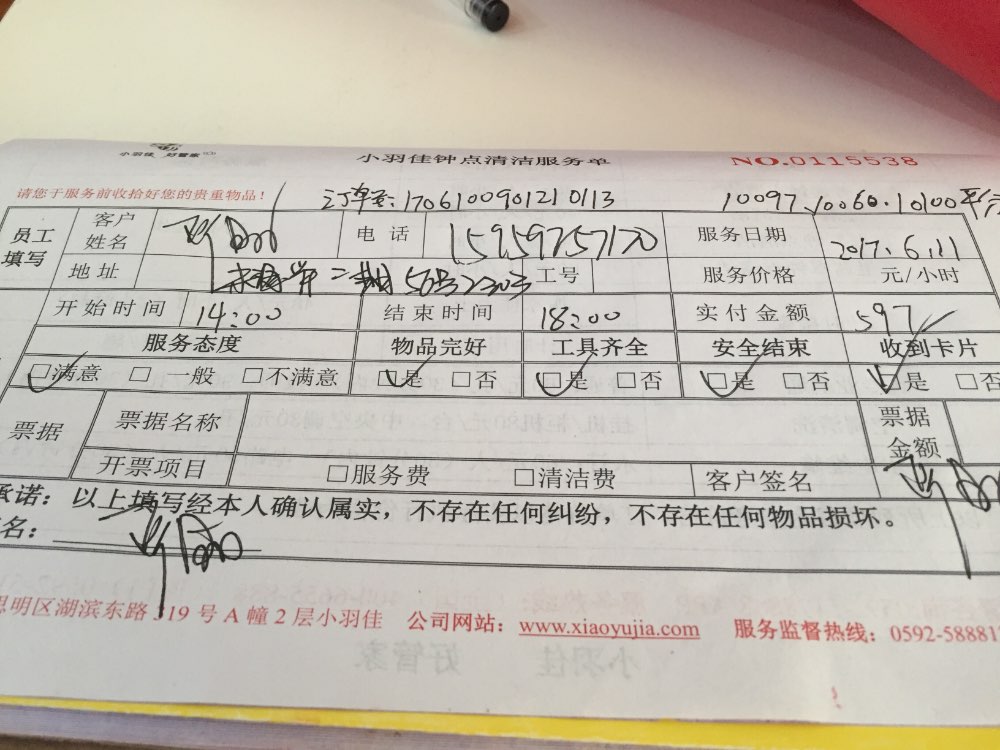 小羽佳 好管家
小羽佳钟点清洁服务单 NO.0115538
请您于服务前收拾好您的贵重物品! 订单号:1706100901210113 10097.10060.10100
员工填写 客户姓名 电话 15959757170 服务日期 2017.6.11
地址 工号 服务价格 元/小时
开始时间 14:00 结束时间 18:00 实付金额 597
服务态度 物品完好 工具齐全 安全结束 收到卡片
□满意 □一般 □不满意 □是 □否 □是 □否 □是 □否 □是 □否
票据 票据名称 票据金额
开票项目 □服务费 □清洁费 客户签名
承诺:以上填写经本人确认属实,不存在任何纠纷,不存在任何物品损坏。
名:
思明区湖滨东路319号A幢2层小羽佳 公司网站:www.xiaoyujia.com 服务监督热线:0592-58881
小羽佳 好管家